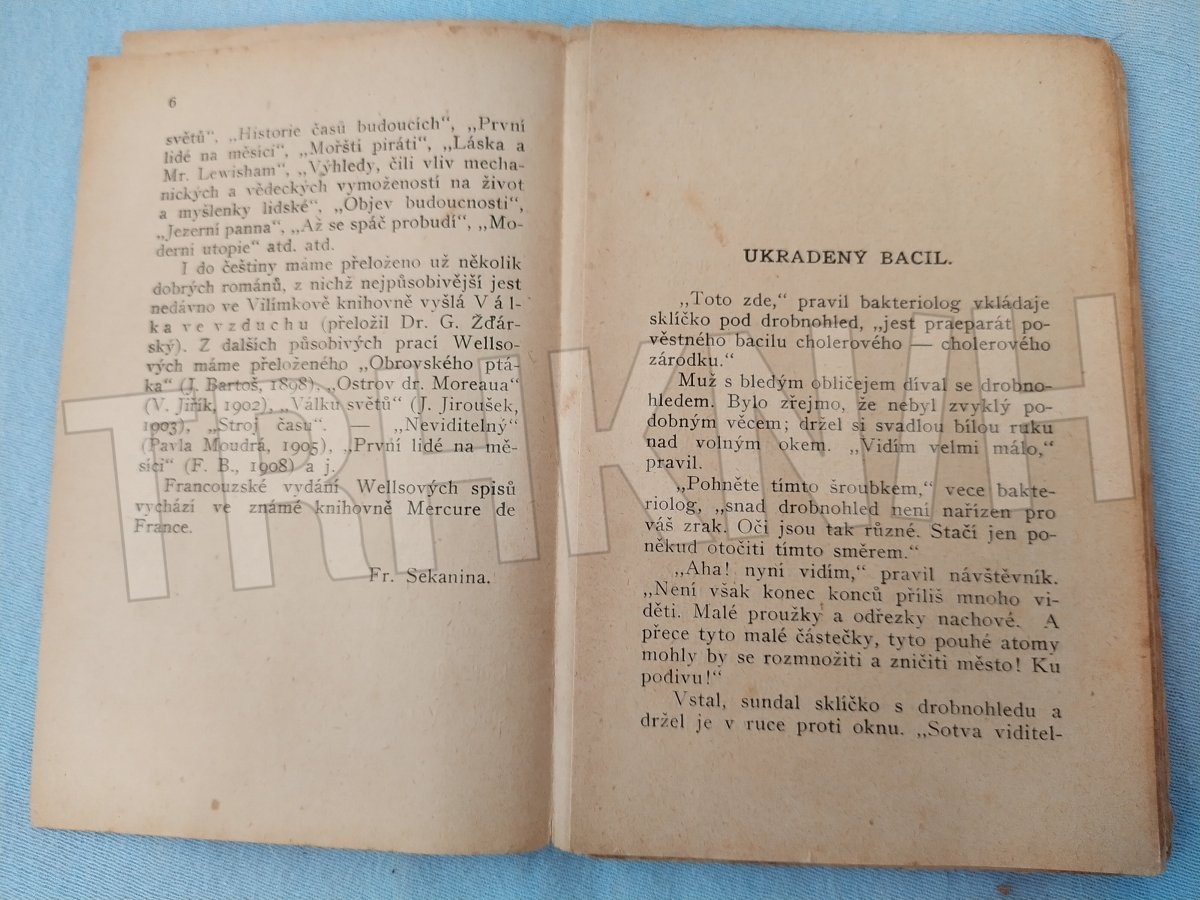 6
světů“, „Historie časů budoucích“, „První
lidé na měsíci“, „Mořští piráti“, „Láska a
Mr. Lewisham“, „Výhledy, čili vliv mecha-
nických a vědeckých vymožeností na život
a myšlenky lidské“, „Objev budoucnosti“,
„Jezerní panna“, „Až se spáč probudí“, „Mo-
derní utopie“ atd. atd.
I do češtiny máme přeloženo už několik
dobrých románů, z nichž nejpůsobivější jest
nedávno ve Vilímkově knihovně vyšlá Vál-
ka ve vzduchu (přeložil Dr. G. Žďár-
ský). Z dalších působivých prací Wellso-
vých máme přeloženého „Obrovského ptá-
ka“ (J. Bartoš, 1898), „Ostrov dr. Moreaua“
(V. Jiřík, 1902), „Válku světů“ (J. Jiroušek,
1903), „Stroj času“. — „Neviditelný“
(Pavla Moudrá, 1905), „První lidé na mě-
síci“ (F. B., 1908) a j.
Francouzské vydání Wellsových spisů
vychází ve známé knihovně Mercure de
France.
Fr. Sekanina.
UKRADENÝ BACIL.
„Toto zde,“ pravil bakteriolog vkládaje
sklíčko pod drobnohled, „jest praeparát po-
věstného bacilu cholerového — cholerového
zárodku.“
Muž s bledým obličejem díval se drobno-
hledem. Bylo zřejmo, že nebyl zvyklý po-
dobným věcem; držel si svadlou bílou ruku
nad volným okem. „Vidím velmi málo,“
pravil.
„Pohněte tímto šroubkem,“ vece bakte-
riolog, „snad drobnohled není nařízen pro
váš zrak. Oči jsou tak různé. Stačí jen po-
někud otočiti tímto směrem.“
„Aha! nyní vidím,“ pravil návštěvník.
„Není však konec konců příliš mnoho vi-
děti. Malé proužky a odřezky nachové. A
přece tyto malé částečky, tyto pouhé atomy
mohly by se rozmnožiti a zničiti město! Ku
podivu!“
Vstal, sundal sklíčko s drobnohledu a
držel je v ruce proti oknu. „Sotva viditel-
TRHKNIH